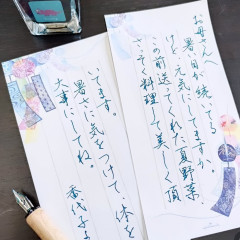 お母さんへ
暑い日が続いてる
けど元気にしてますか。
この前送ってくれた夏野菜、
料理して美しく頂
いてます。
暑さに気をつけて、体を
大事にしてね。
香代子より